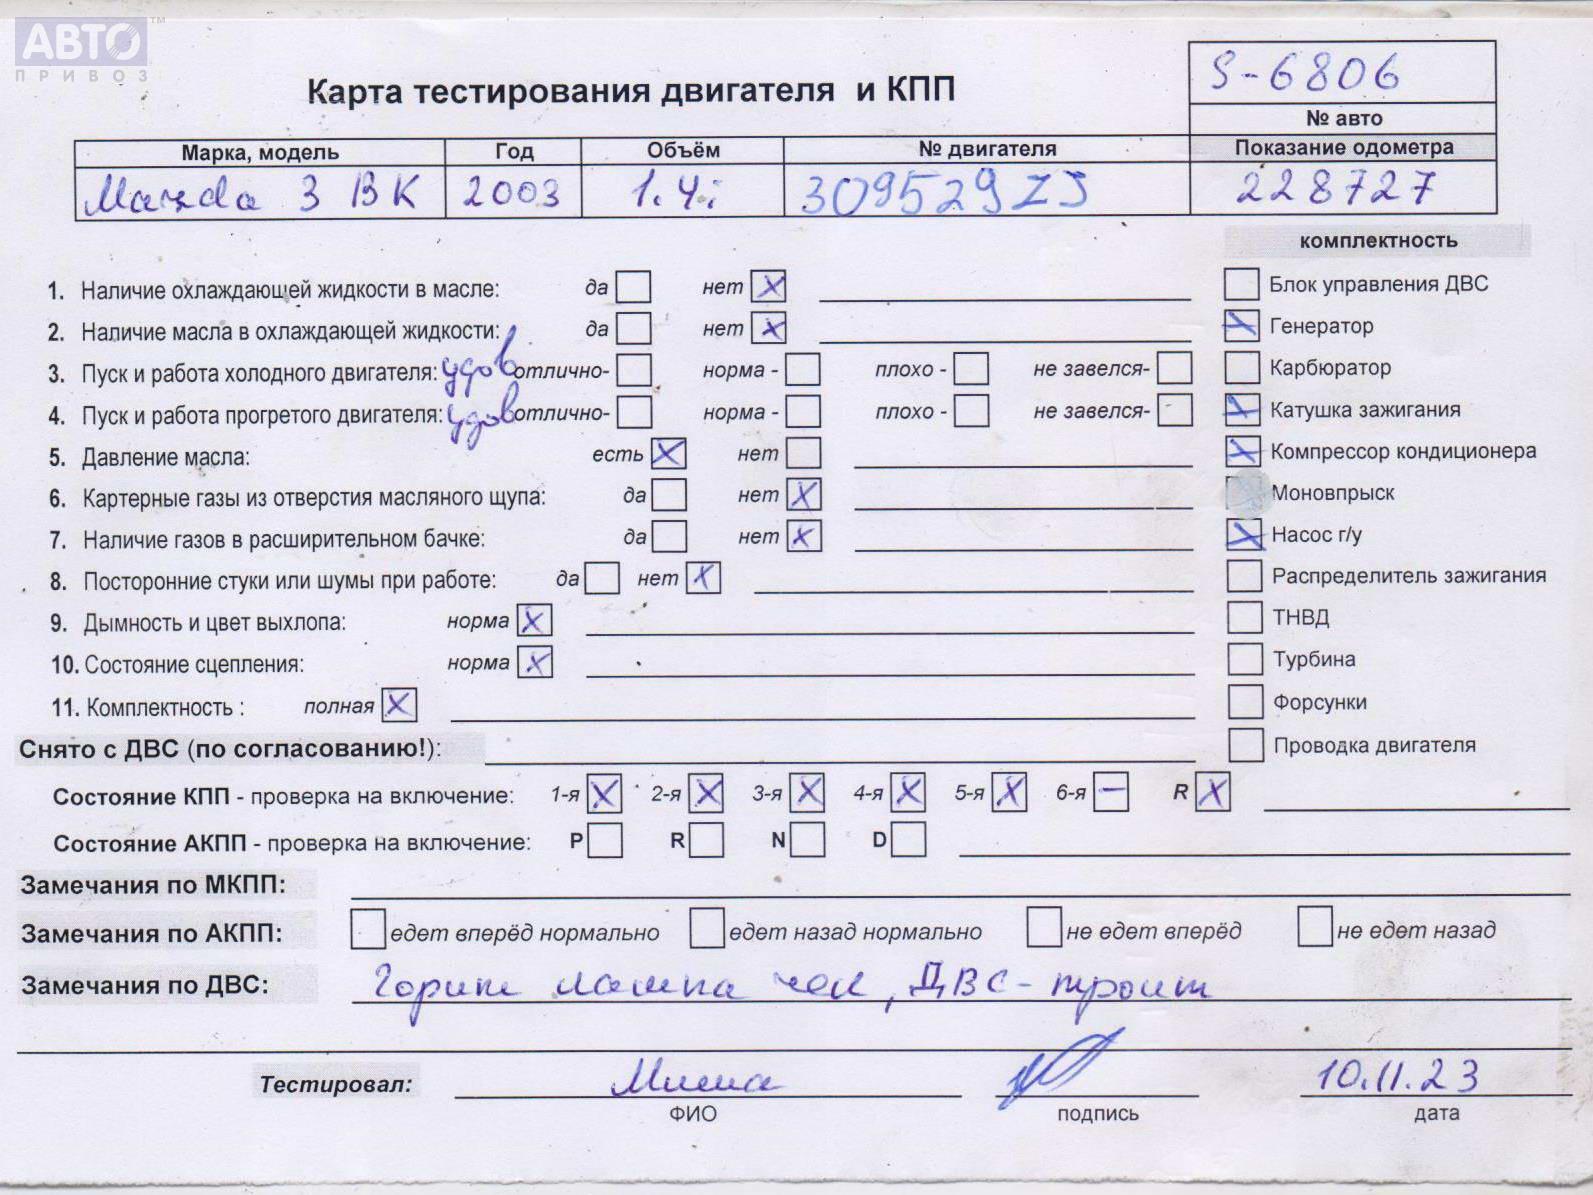 АВТО™
ПРИВОЗ
Карта тестирования двигателя и КПП
S-6806
№ авто
Марка, модель Год Объём № двигателя Показание одометра
Mazda 3 BK 2003 1.4i 309529ZJ 228727
комплектность
1. Наличие охлаждающей жидкости в масле: да нет X
Блок управления ДВС
2. Наличие масла в охлаждающей жидкости: да нет X
Генератор
3. Пуск и работа холодного двигателя: удов отлично- норма - плохо - не завелся-
Карбюратор
4. Пуск и работа прогретого двигателя: удов отлично- норма - плохо - не завелся-
Катушка зажигания
5. Давление масла: есть X нет
Компрессор кондиционера
6. Картерные газы из отверстия масляного щупа: да нет X
Моновпрыск
7. Наличие газов в расширительном бачке: да нет X
Насос г/у
8. Посторонние стуки или шумы при работе: да нет X
Распределитель зажигания
9. Дымность и цвет выхлопа: норма X
ТНВД
10. Состояние сцепления: норма X
Турбина
11. Комплектность : полная X
Форсунки
Снято с ДВС (по согласованию!):
Проводка двигателя
Состояние КПП - проверка на включение: 1-я X 2-я X 3-я X 4-я X 5-я X 6-я – R X
Состояние АКПП - проверка на включение: P R N D
Замечания по МКПП:
Замечания по АКПП: едет вперёд нормально едет назад нормально не едет вперёд не едет назад
Замечания по ДВС: Горит лампа чек, ДВС - троит
Тестировал: Миша 10.11.23
ФИО подпись дата